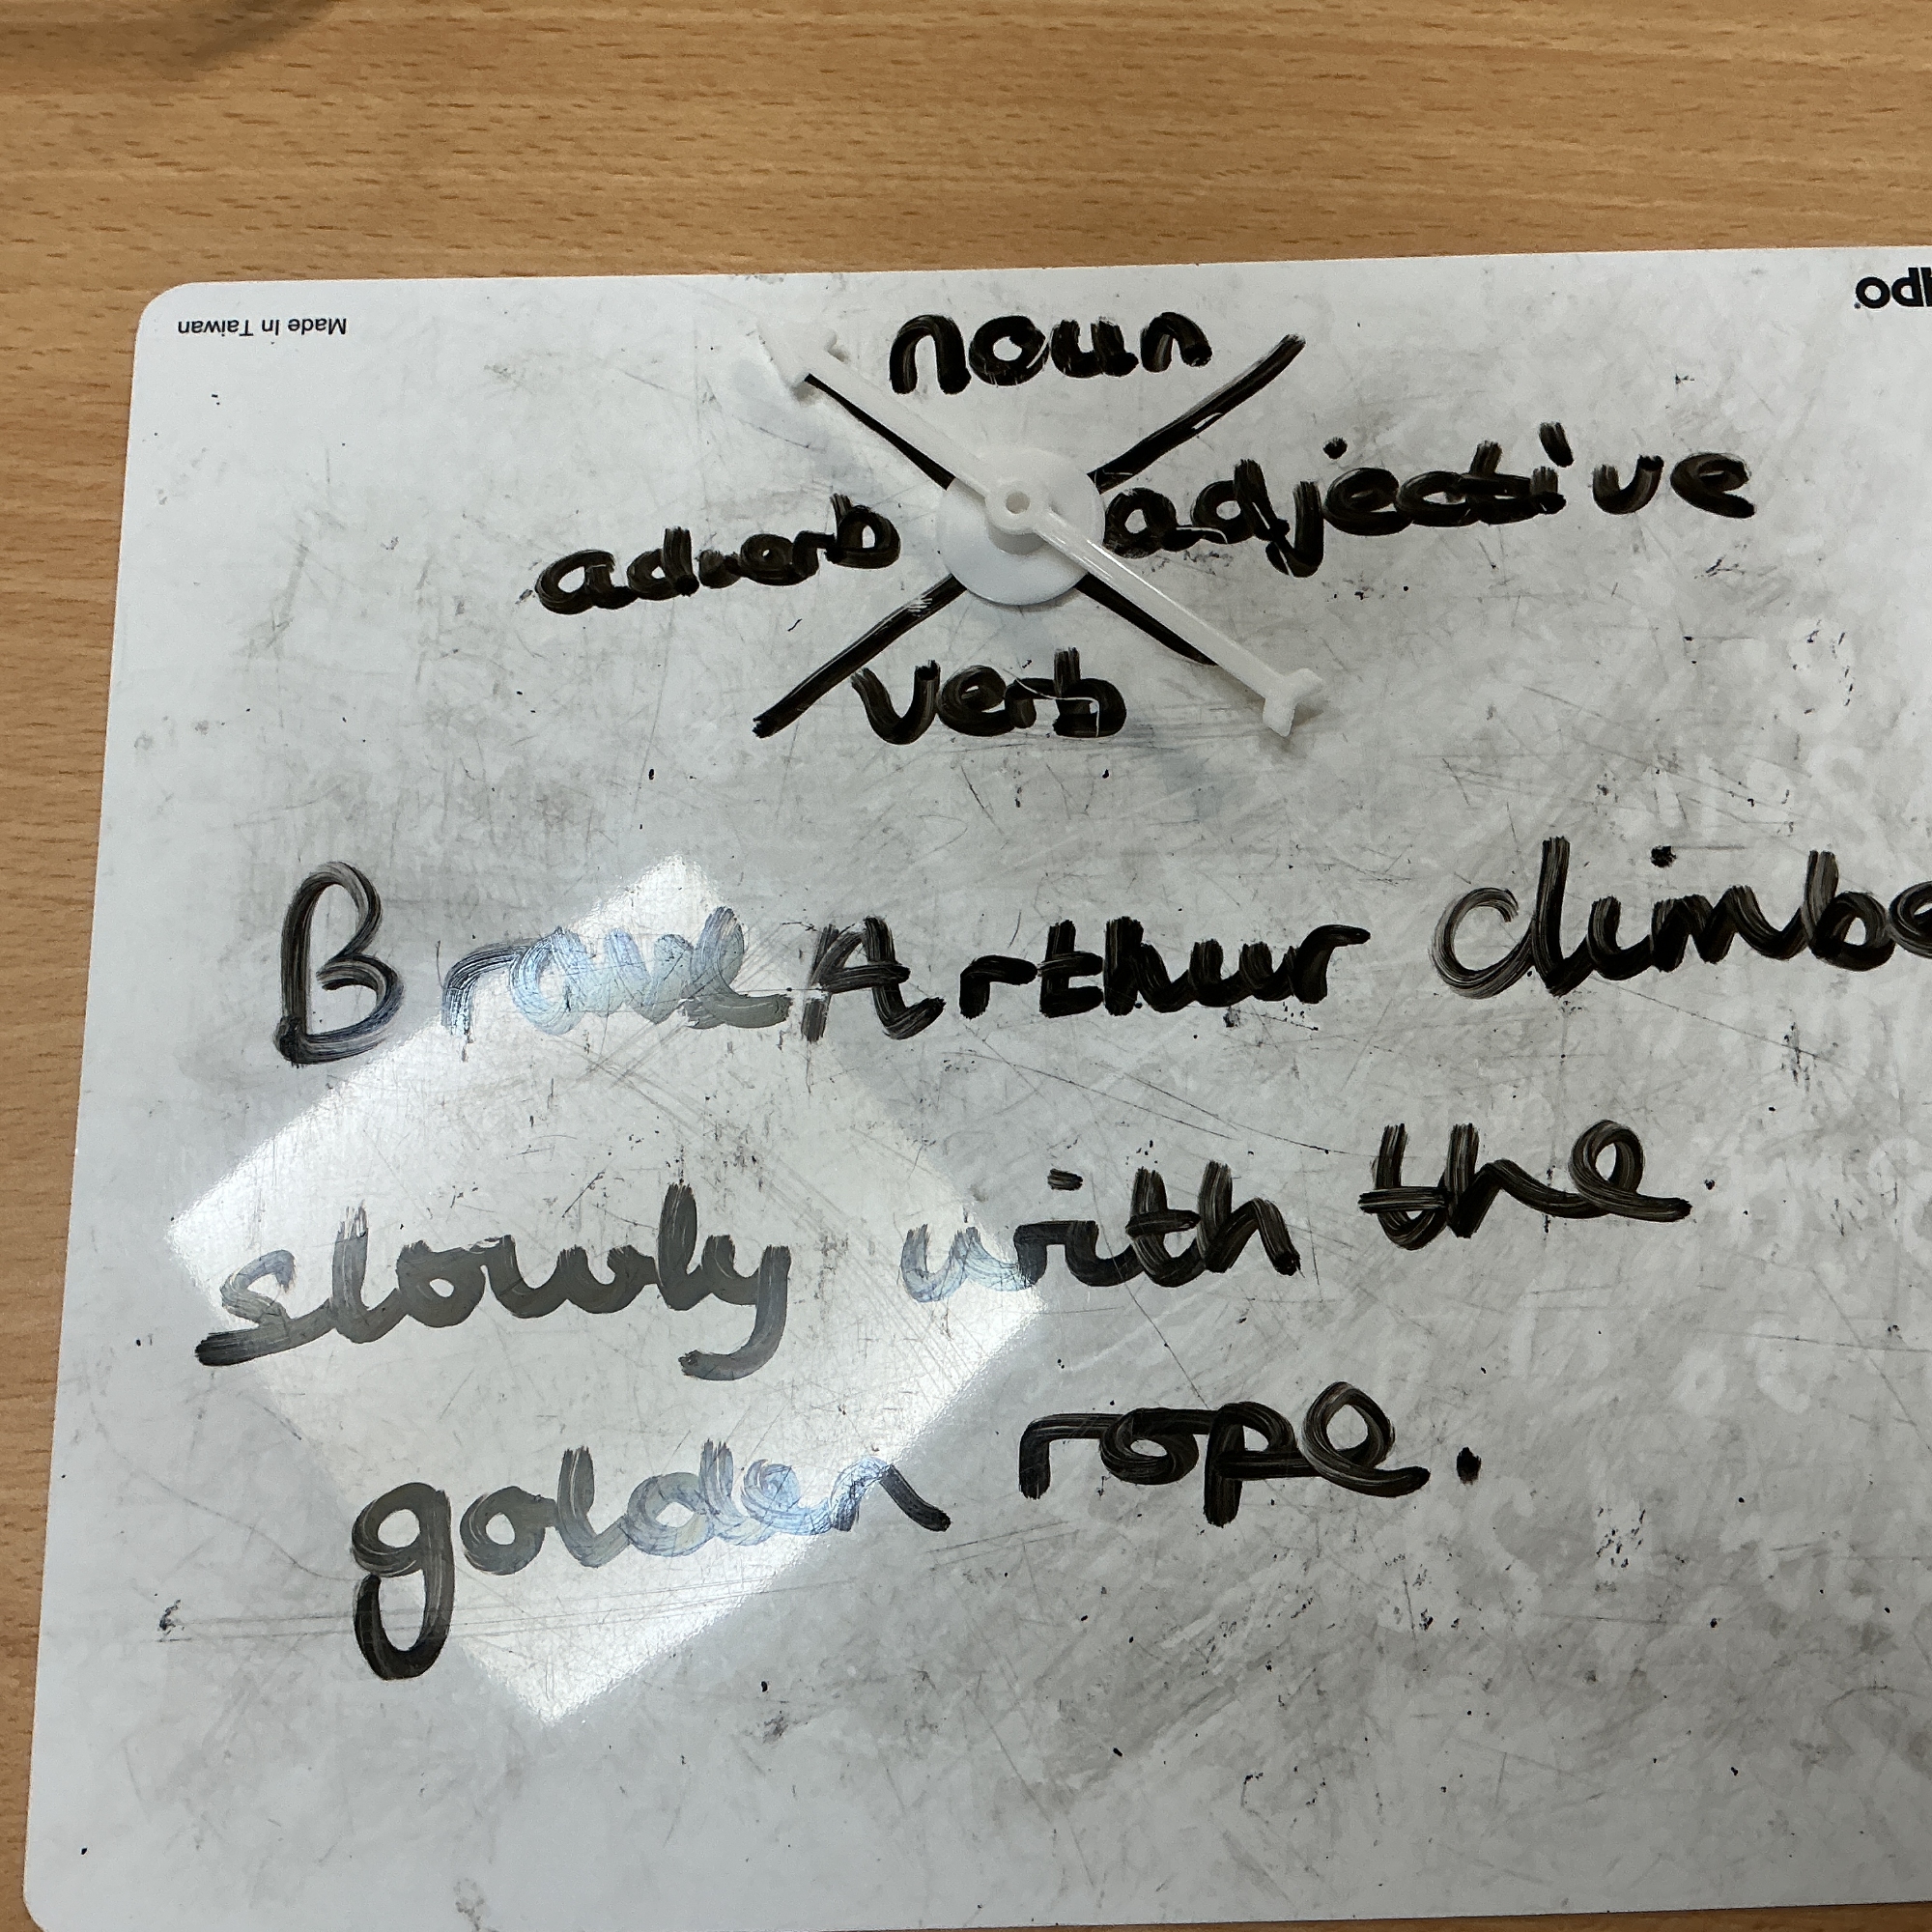 Made In Taiwan
noun
adjective
adverb
verb
Brave Arthur climbe
slowly with the
golden rope.